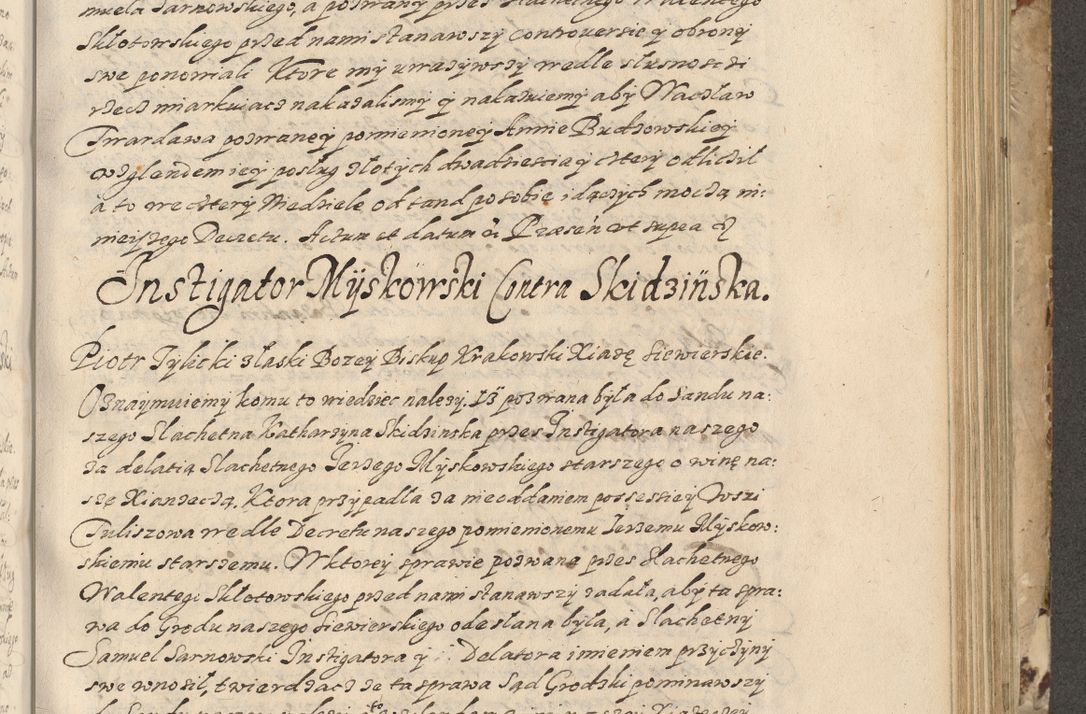 muela Sarnowskiego, a pozwany przes Slachetnego Walentego
Skłotowskiego przed nami stanawszy controuersie y obrony
swe ponowiali Ktore my uwazywszy wedle slusnosczi
rzeczi miarkuiacz nakazalismy y nakazuiemy aby Waczlaw
Twardawa pozwaney pomienioney Annie Buczowskiey
wzglendem iey posług złotych dwadziescia y cztery odliczil
a to we cztery Niedziele od tand po sobie idączych moczą ni:
nieyszego Decretu. Actum et datum Præsen vt supra
Instigator Myskowski Contra Skidzińska.
Piotr Tylicki z łaski Bozey Biskup Krakowski Xiążę Siewierskie.
Oznaymuiemy komu to wiedziec nalezy. Iż pozwana była do Sandu na:
szego Slachetna Katharzyna Skidzinska przes Instigatora naszego
za delatią Slachetnego Jerzego Myskowskiego starszego o winę na:
szę Xianzeczą. Ktora przypadla za nieoddaniem possessiey Wszi
Tuliszowa wedle Decretu naszego pomienionemu Jerzemu Myskow:
skiemu starszemu. W ktorey sprawie pozwana przes Slachetnego
Walentego Skłotowskiego przed nami stanawszy zadała, aby ta spra:
wa do Grodu naszego Siewierskiego odesłana była, a Slachetny
Samuel Sarnowski Instigatora y Delatora imieniem przyczyny
swe wnosił, twierdzacz ze ta sprawa Sąd Grodzki pominawszy